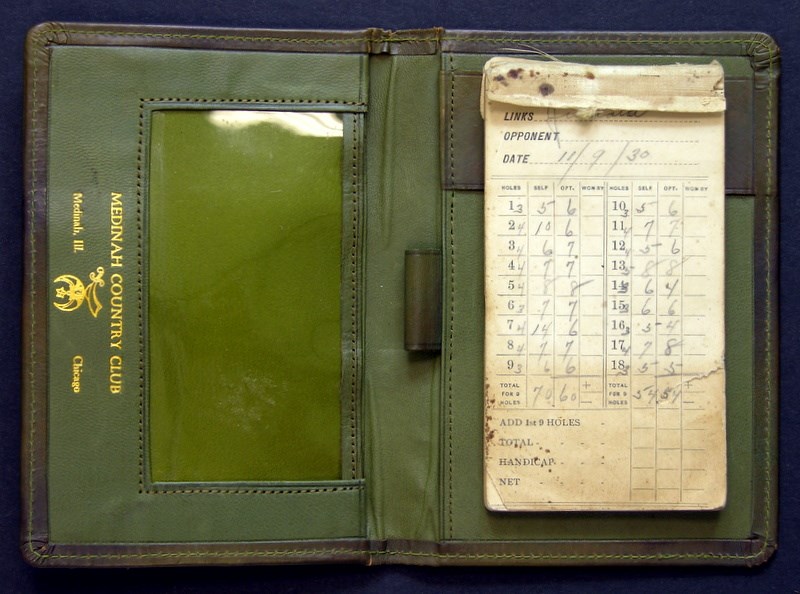 MEDINAH COUNTRY CLUB
Medinah, Ill.
Chicago
LINKS
OPPONENT
DATE 11/9/30
HOLES SELF OPT. WON BY HOLES SELF OPT. WON BY
1 3 5 6 10 3 5 6
2 4 10 6 11 4 7 7
3 4 6 7 12 4 5 6
4 4 7 7 13 5 8 8
5 4 8 8 14 6 4
6 3 7 7 15 3 6 6
7 4 14 6 16 3 5 4
8 4 7 7 17 4 7 8
9 3 6 6 18 3 5 5
TOTAL FOR 9 HOLES 70 60 + – TOTAL FOR 9 HOLES 54 54
ADD 1st 9 HOLES
TOTAL
HANDICAP
NET